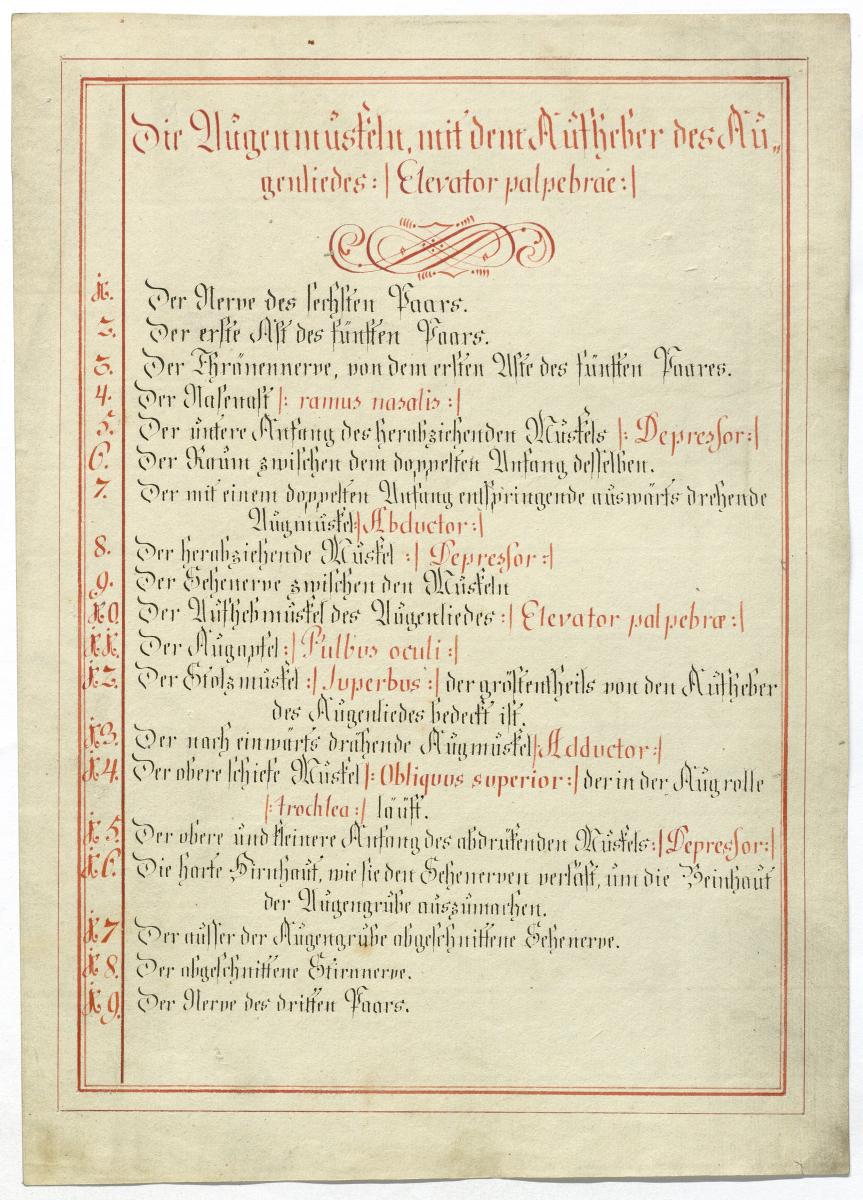 Die Augenmuskeln, mit dem Aufheber des Au„
genliedes :| Elevator palpebrae :|
1. Der Nerve des sechsten Paars.
2. Der erste Ast des fünften Paars.
3. Der Thränennerve, von dem ersten Aste des fünften Paares.
4. Der Nasenast |: ramus nasalis :|
5. Der untere Anfang des herabziehenden Muskels |: Depressor :|
6. Der Raum zwischen dem doppelten Anfang desselben.
7. Der mit einem doppelten Anfang entspringende auswärts drehende
Augmuskel| Abductor :|
8. Der herabziehende Muskel :| Depressor :|
9. Der Sehenerve zwischen den Muskeln
10. Der Aufhebmuskel des Augenliedes :| Elevator palpebræ :|
11. Der Augapfel :| Pulbus oculi :|
12. Der Stolzmuskel :| Superbus :| der gröstentheils von den Aufheber
des Augenliedes bedeckt ist.
13. Der nach einwärts drähende Augmuskel| Adductor :|
14. Der obere schiefe Muskel |: Obliquus superior :| der in der Augrolle
|: trochlea :| läuft.
15. Der obere und kleinere Anfang des abdrükenden Muskels :| Depressor :|
16. Die harte Hirnhaut, wie sie den Sehenerven verläst, um die Beinhaut
der Augengrube auszumachen.
17. Der ausser der Augengrube abgeschnittene Sehenerve.
18. Der abgeschnittene Stirnnerve.
19. Der Nerve des dritten Paars.